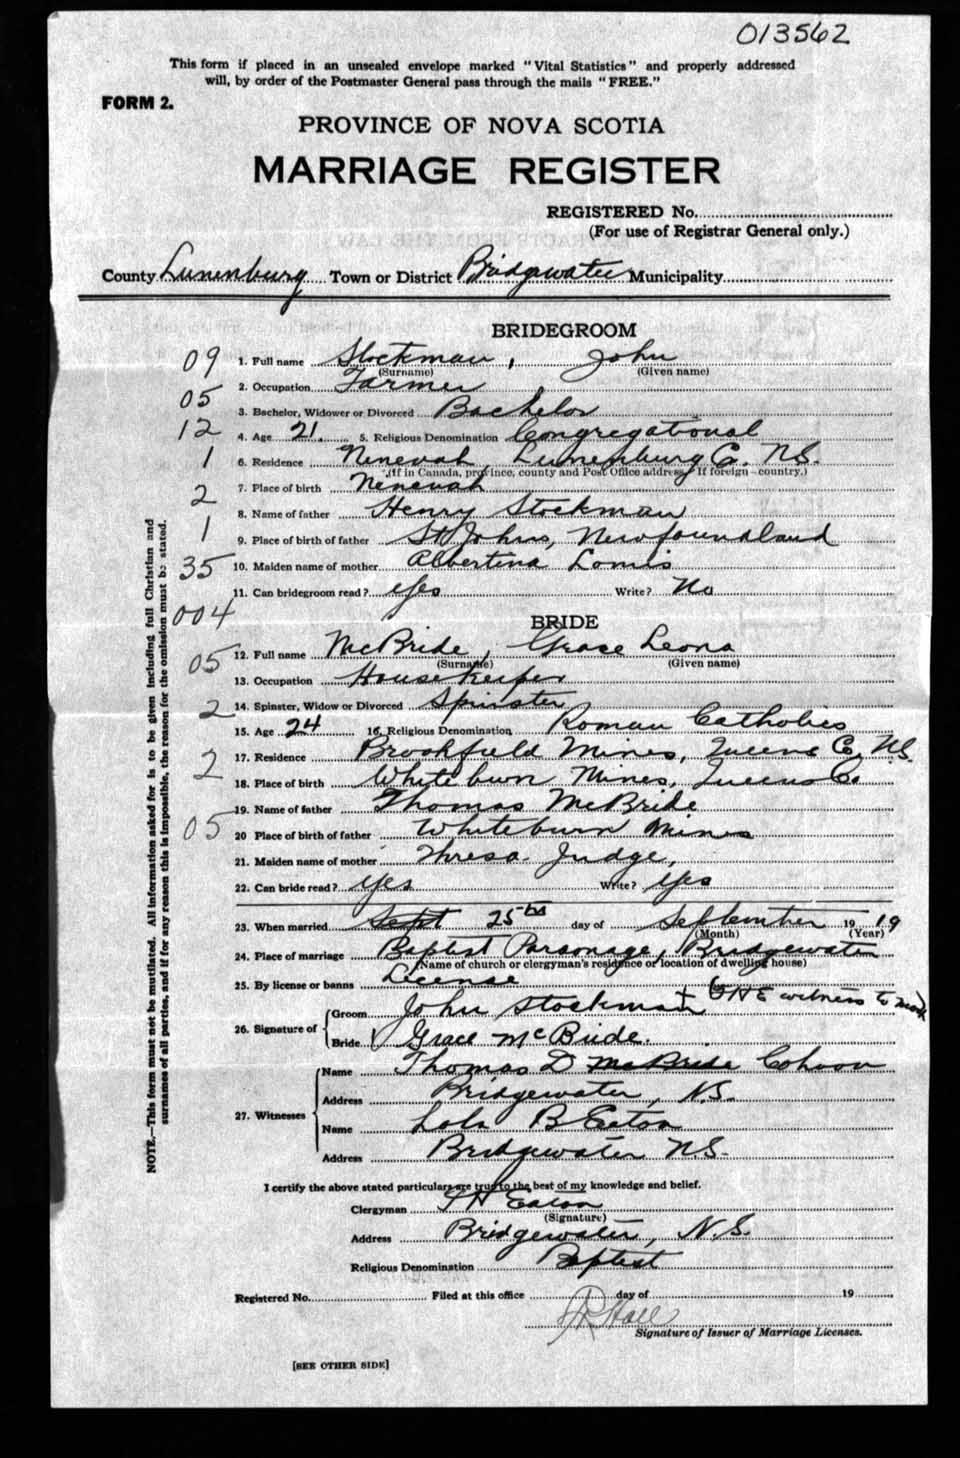 013562
This form if placed in an unsealed envelope marked "Vital Statistics" and properly addressed
will, by order of the Postmaster General pass through the mails "FREE."
FORM 2.
PROVINCE OF NOVA SCOTIA
MARRIAGE REGISTER
REGISTERED No.
(For use of Registrar General only.)
County Lunenburg Town or District Bridgewater Municipality
BRIDEGROOM
09 1. Full name Stockman, John
(Surname) (Given name)
2. Occupation Farmer
05 3. Bachelor, Widower or Divorced Bachelor
12 4. Age 21. 5. Religious Denomination Congregational
1 6. Residence Nenevah, Lunenburg Co. N.S.
(If in Canada, province, county and Post Office address. If foreign—country.)
2 7. Place of birth Nenevah
8. Name of father Henry Stockman
1 9. Place of birth of father St Johns, Newfoundland
35 10. Maiden name of mother Albertina Lomis
11. Can bridegroom read? yes Write? No
004
BRIDE
05 12. Full name McBride, Grace Leona
(Surname) (Given name)
13. Occupation Housekeeper
2 14. Spinster, Widow or Divorced Spinster
15. Age 24 16. Religious Denomination Roman Catholic
17. Residence Brookfield Mines, Queens Co, N.S.
2 18. Place of birth Whiteburn Mines, Queens Co.
19. Name of father Thomas McBride
05 20 Place of birth of father Whiteburn Mines
21. Maiden name of mother Thresa Judge,
22. Can bride read? yes Write? yes
23. When married Sept 25th day of September 1919
(Month) (Year)
24. Place of marriage Baptist Parsonage, Bridgewater
(Name of church or clergyman's residence or location of dwelling house)
25. By license or banns License
26. Signature of
Groom John Stockman + witness to mark
Bride Grace McBride.
27. Witnesses
Name Thomas D McBride Cohoon
Address Bridgewater, N.S.
Name Lola B Eaton
Address Bridgewater N.S.
I certify the above stated particulars are true to the best of my knowledge and belief.
Clergyman Eaton
(Signature)
Address Bridgewater, N.S.
Religious Denomination Baptist
Registered No. Filed at this office day of 19
Hall
Signature of Issuer of Marriage Licenses.
[SEE OTHER SIDE]
NOTE.—This form must not be mutilated. All information asked for is to be given including full Christian and
surnames of all parties, and if for any reason this is impossible, the reason for the omission must be stated.